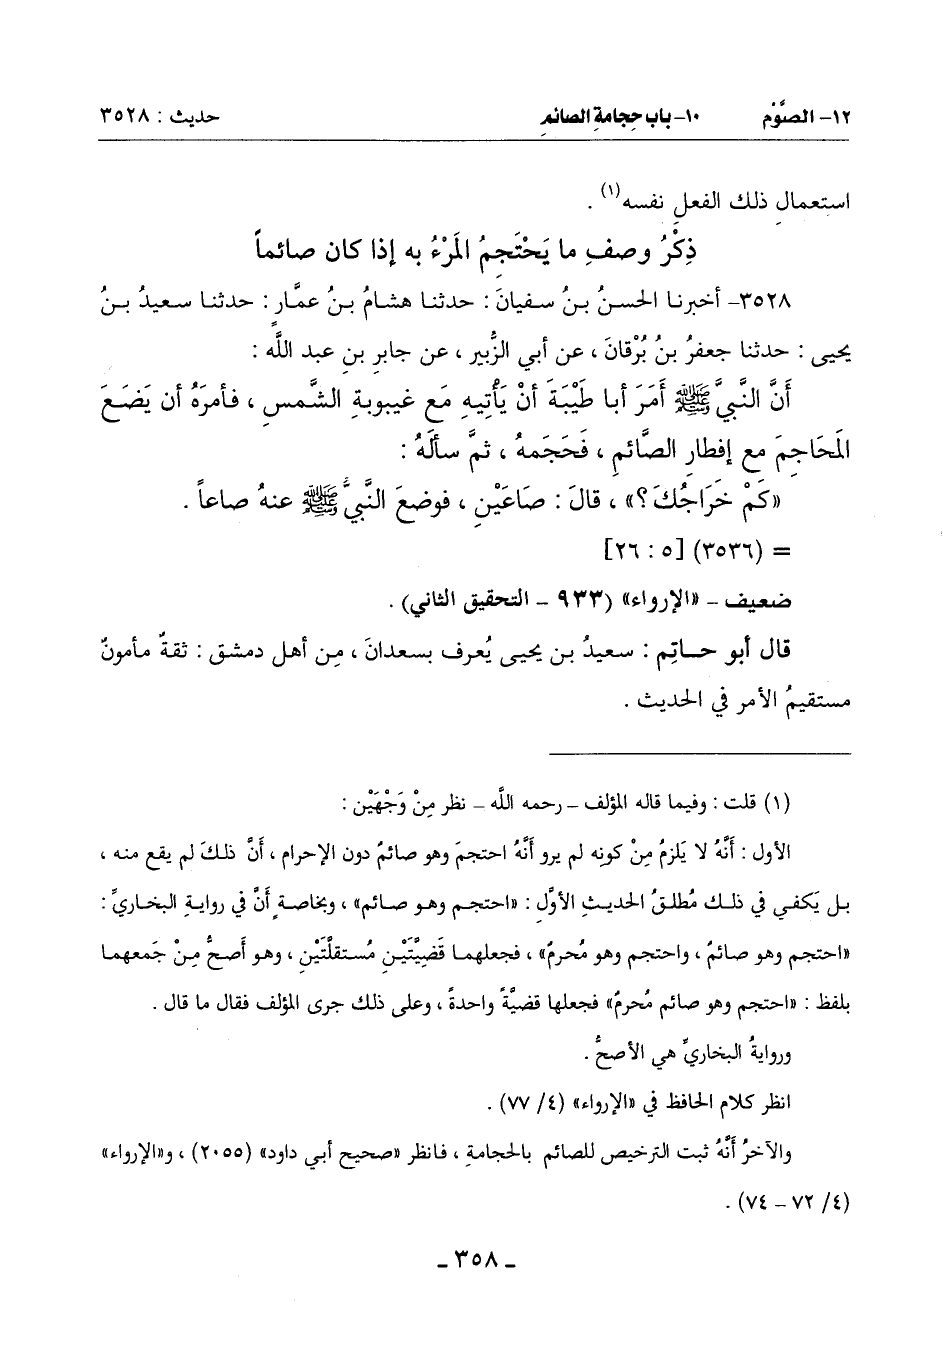 ١٢- الصَّوْم ١٠- باب حِجامةِ الصائمِ حديث : ٣٥٢٨
استعمال ذلك الفعلِ نفسه(١) .
ذِكْرُ وصفِ ما يَحْتَجِمُ المَرْءُ به إذا كان صائماً
٣٥٢٨- أخبرنا الحسنُ بنُ سفيانَ : حدثنا هشامُ بنُ عمَّارٍ : حدثنا سعيدُ بنُ
يحيى : حدثنا جعفرُ بنُ بُرْقانَ ، عن أبي الزُّبير ، عن جابرِ بنِ عبد اللَّه :
أَنَّ النَّبيَّ ﷺ أَمَرَ أبا طَيْبَةَ أنْ يَأْتِيهِ مَع غيبوبةِ الشَّمسِ ، فأمرَهُ أن يَضَعَ
المَحَاجِمَ مع إفطارِ الصَّائمِ ، فَحَجَمهُ ، ثمَّ سألَهُ :
«كَمْ خَرَاجُكَ؟» ، قالَ : صَاعَيْنِ ، فوضعَ النَّبيُّ ﷺ عنهُ صاعاً .
= (٣٥٣٦) [٥ : ٢٦]
ضعيف - «الإرواء» (٩٣٣ - التحقيق الثاني) .
قال أبو حاتِم : سعيدُ بن يحيى يُعرف بسعدانَ ، مِن أهل دمشق : ثقةٌ مأمونٌ
مستقيمُ الأمر في الحديث .
(١) قلت : وفيما قاله المؤلف - رحمه اللَّه - نظر مِنْ وَجْهَيْن :
الأول : أَنَّهُ لا يَلزمُ مِنْ كونه لم يرو أنَّهُ احتجمَ وهو صائمٌ دون الإحرام ، أنَّ ذلكَ لم يقع منه ،
بل يَكفي في ذلك مُطلقُ الحديثِ الأوَّل : «احتجم وهو صائم» ، وبخاصةٍ أنَّ في روايةِ البخاريِّ :
«احتجم وهو صائمٌ ، واحتجم وهو مُحرمٌ» ، فجعلهما قَضِيَّتَيْنِ مُستقلَّتَيْنِ ، وهو أصحُّ مِنْ جَمعهما
بلفظ : «احتجم وهو صائم مُحرمٌ» فجعلها قضيَّةً واحدةً ، وعلى ذلك جرى المؤلف فقال ما قال .
وروايةُ البخاريِّ هي الأصحُّ .
انظر كلام الحافظ في «الإرواء» (٤/ ٧٧) .
والآخرُ أنَّهُ ثبت الترخيص للصائم بالحجامةِ ، فانظر «صحيح أبي داود» (٢٠٥٥) ، و«الإرواء»
(٤/ ٧٢ - ٧٤) .
- ٣٥٨ -